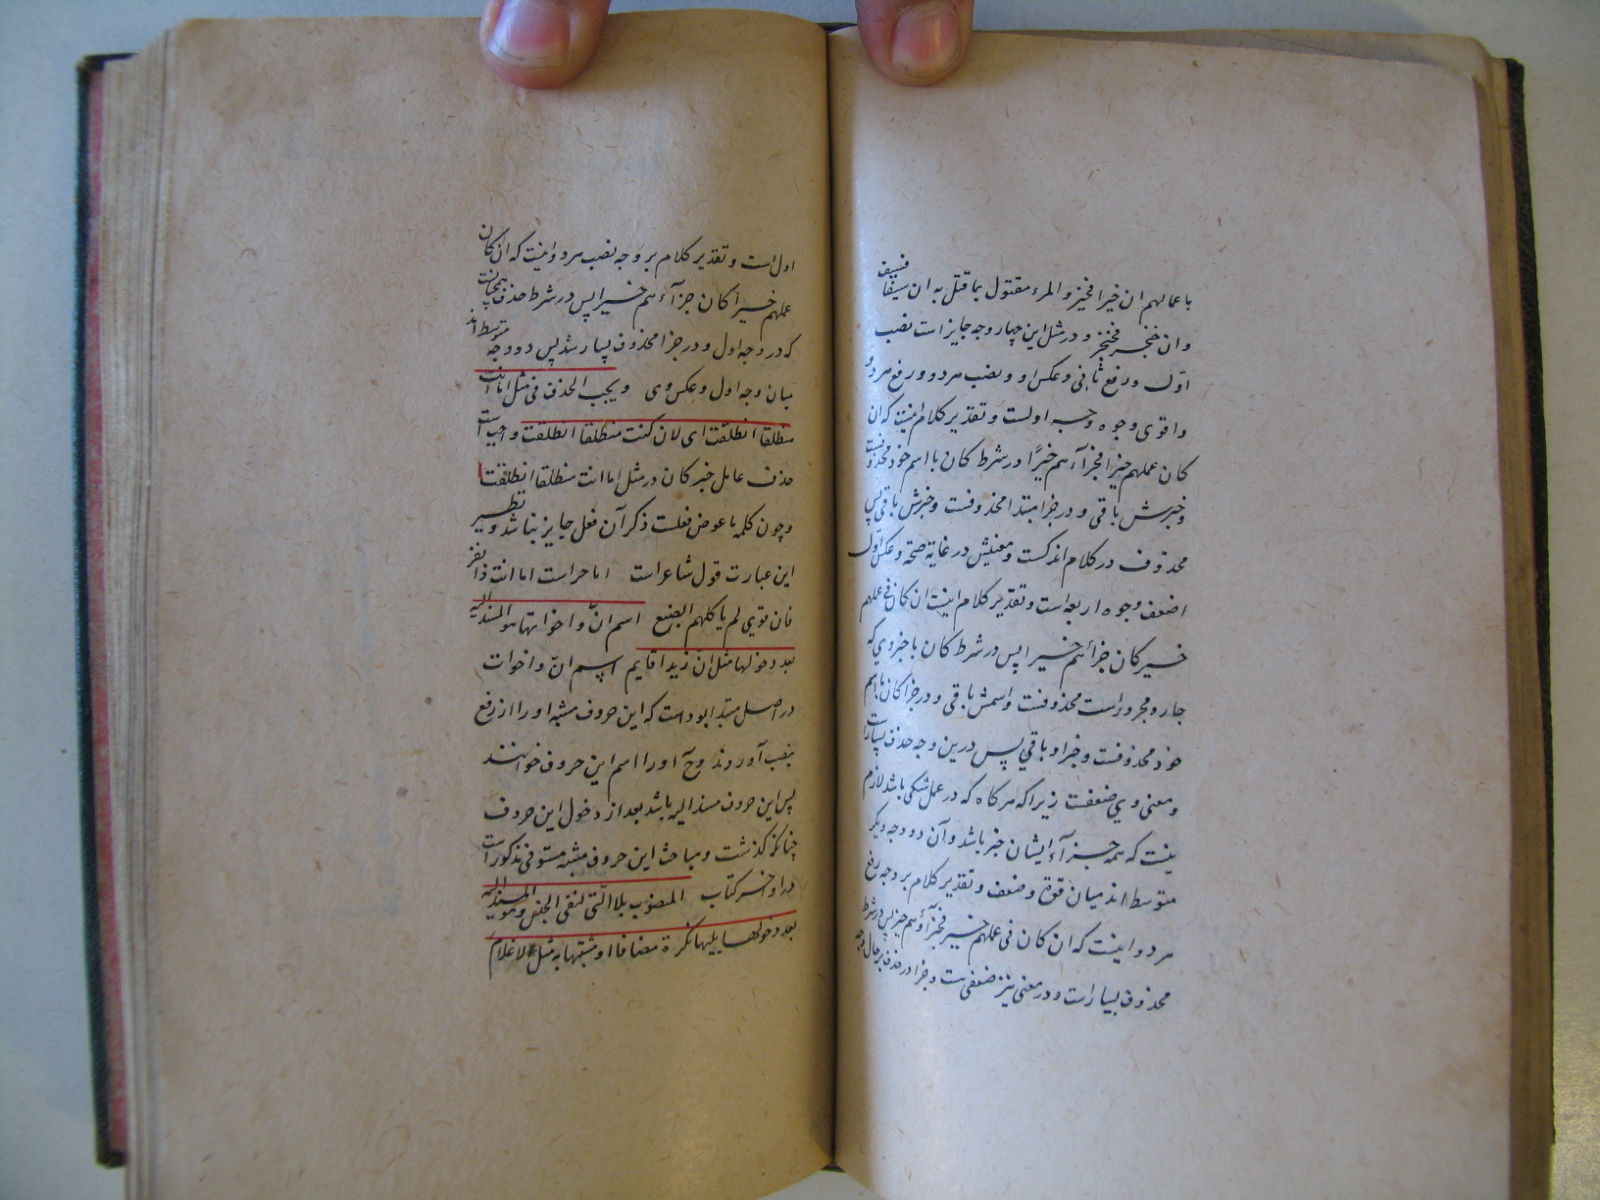 باعمالهم ان خیرا فخیر و المرء مقتول بما قتل به ان سیفا فسیف
و ان خنجر فخنجر و در مثل این چهار وجه جایز است نصب
اوّل و رفع ثانی و عکس او و نصب هر دو و رفع هر دو
و اقوی وجوه وجه اولست و تقدیر کلام اینست که ان
کان عملهم خیرا فجزآءهم خیرًا در شرط کان با اسم خود محذوفست
و خبرش باقی و در جزا مبتدا محذوفست و خبرش باقی پس
محذوف در کلام اندکست و معنیش در غایة صحة و عکس اوّل
اضعف وجوه اربعه است و تقدیر کلام اینست ان کان فی عملهم
خیر کان جزائهم خیرا پس در شرط کان با خبر وی که
جار و مجرور است محذوفست و اسمش باقی و در جزا کان با اسم
خود محذوفست و خبر او باقی پس درین وجه حذف بسیار است
و معنی وی ضعفست زیرا که هر کاه که در عمل شکی باشد لازم
نیست که همه جزآء ایشان خیر باشد و آن دو وجه دیگر
متوسط اند میان قوة و ضعف و تقدیر کلام بر وجه رفع
هر دو اینست که ان کان فی عملهم خیر فجزآؤهم خیر پس در شرط
محذوف بسیار است و در معنی نیز ضعفی هست و جزا در حذف بر حال وجه
اول است و تقدیر کلام بر وجه نصب هر دو اینست که ان کان
عملهم خیرًا کان جزآءهم خیرا پس در شرط حذف همچنانست
که در وجه اول و در جزا محذوف بسیار شد پس دو وجه متوسط اند
میان وجه اول و عکس وی و یجب الحذف فی مثل اما انت
منطلقا انطلقت ای لان کنت منطلقا انطلقت واجب است
حذف عامل خبر کان در مثل اما انت منطلقا انطلقت
و چون کلمه ما عوض فعلست ذکر آن فعل جایز نباشد و نظیر
این عبارت قول شاعر است اباخراست اما انت ذا نفر
فان قومی لم یاکلهم الضبع اسم انّ و اخواتها هو المسند الیه
بعد دخولها مثل انّ زیدا قایم اسم انّ و اخوات
در اصل مبتدا بوده است که این حروف مشبه او را از رفع
بنصب آوردند و ح او را اسم این حروف خوانند
پس این حروف مسند الیه باشد بعد از دخول این حروف
چنانکه گذشت و مباحث این حروف مشبه مستوفی مذکور است
در اواخر کتاب المنصوب بلا الّتی لنفی الجنس و هو المسند الیه
بعد دخولها یلیها نکرة مضافا او مشبها به مثل لا غلام